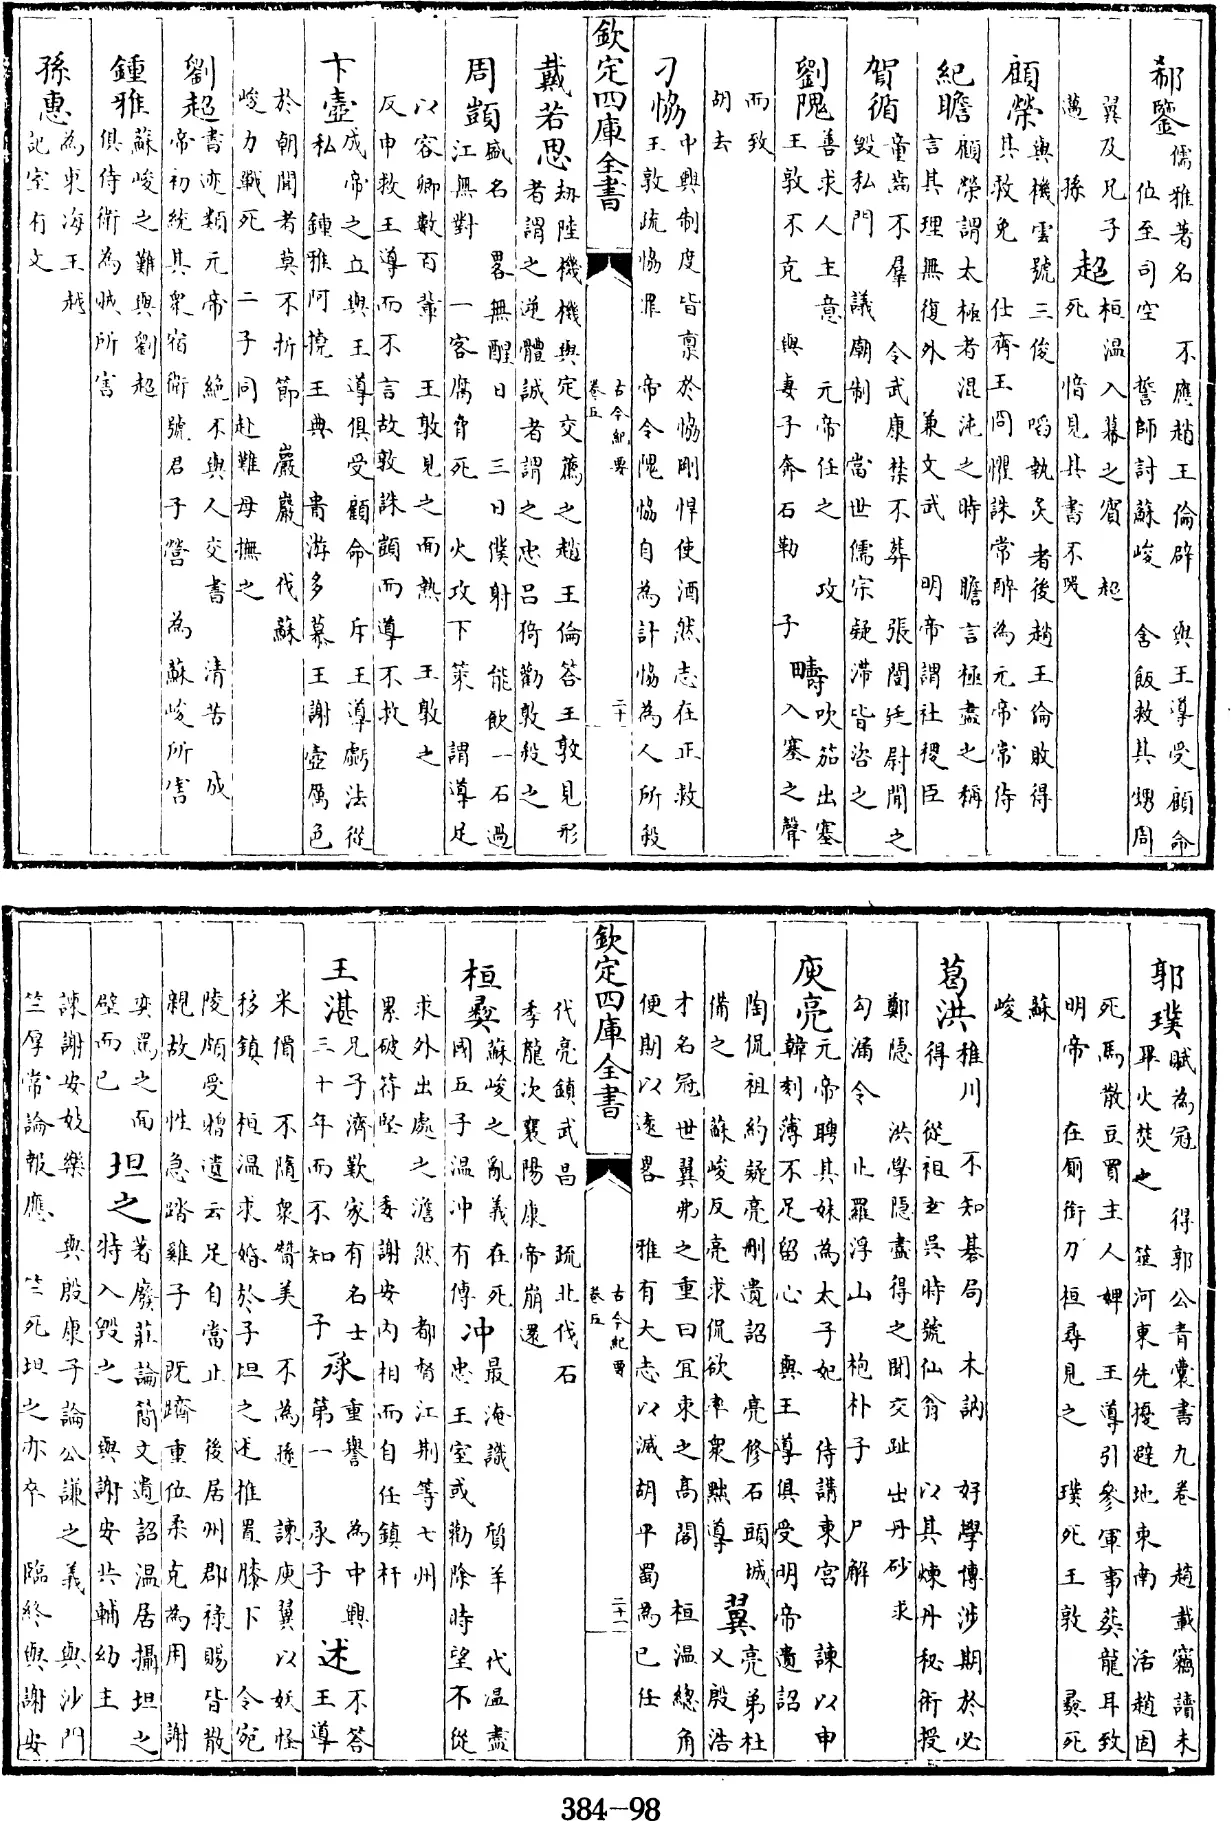 郗鑒
儒雅著名 不應趙王倫辟 與王導受顧命
位至司空 誓師討蘇峻 含飯救其甥周
翼及兄子
邁 孫
超
桓溫入幕之賓 超
死 愔見其書不哭
顧榮
與機雲號三俊 啗執炙者後趙王倫敗得
其救免 仕齊王冏懼誅常醉為元帝常侍
紀瞻
顧榮謂太極者混沌之時 瞻言極盡之稱
言其理無復外 兼文武 明帝謂社稷臣
賀循
童齒不羣 令武康禁不葬 張闓廷尉聞之
毀私門 議廟制 當世儒宗疑滯皆咨之
劉隗
善求人主意 元帝任之 攻
王敦不克 與妻子奔石勒 子
疇
吹笳出塞
入塞之聲
而致
胡去
刁協
中興制度皆禀於協剛悍使酒然志在正救
王敦疏協罪 帝令隗協自為計協為人所殺
欽定四庫全書
古今紀要
卷五
二十
戴若思
刼陸機機與定交薦之趙王倫答王敦見形
者謂之逆體誠者謂之忠呂猗勸敦殺之
周顗
盛名 畧無醒日 三日僕射 能飲一石過
江無對 一客腐脅死 火攻下策 謂導足
以容卿數百輩 王敦見之面熱 王敦之
反申救王導而不言故敦誅顗而導不救
卞壼
成帝之立與王導俱受顧命 斥王導虧法從
私 鍾雅阿撓王典 貴游多慕王謝壼厲色
於朝聞者莫不折節 巖巖 伐蘇
峻力戰死 二子同赴難母撫之
劉超
書迹類元帝 絶不與人交書 清苦 成
帝初統其衆宿衛號君子營 為蘇峻所害
鍾雅
蘇峻之難與劉超
俱侍衛為賊所害
孫惠
為東海王越
記室有文
郭璞
賦為冠 得郭公青囊書九卷 趙載竊讀未
畢火焚之 筮河東先擾避地東南 活趙固
死馬散豆買主人婢 王導引參軍事葬龍耳致
明帝 在厠銜刀桓尋見之 璞死王敦 彞死
蘇
峻
葛洪
稚川 不知棊局 木訥 好學博涉期於必
得 從祖玄吳時號仙翁 以其煉丹秘術授
鄭隱 洪學隱盡得之聞交趾出丹砂求
勾漏令 止羅浮山 抱朴子 尸解
庾亮
元帝聘其妹為太子妃 侍講東宮 諫以申
韓刻薄不足留心 與王導俱受明帝遺詔
陶侃祖約疑亮刪遺詔 亮修石頭城
備之 蘇峻反亮求侃欲率衆黜導
翼
亮弟杜
乂殷浩
才名冠世翼弗之重曰宜束之高閣 桓溫總角
便期以遠畧 雅有大志以滅胡平蜀為已任
欽定四庫全書
古今紀要
卷五
二十一
代亮鎮武昌 疏北伐石
季龍次襄陽康帝崩還
桓彞
蘇峻之亂義在死
國五子溫冲有傳
冲
最淹識 質羊 代溫盡
忠王室或勸除時望不從
求外出處之澹然 都督江荆等七州
累破苻堅 委謝安內相而自任鎮杆
王湛
兄子濟歎家有名士
三十年而不知 子
承
重譽 為中興
第一 承子
述
不答
王導
米價 不隋衆贊美 不為遜 諫庾翼以妖怪
移鎮 桓溫求婚於子坦之述推置膝下 令宛
陵頗受贈遺云足自當止 後居州郡祿賜皆散
親故 性急踏雞子 既躋重位柔克為用 謝
奕罵之面
壁而已
坦之
著廢莊論簡文遺詔溫居攝坦之
特入毀之 與謝安共輔幼主
諫謝安妓樂 與殷康子論公謙之義 與沙門
竺厚常論報應 竺死坦之亦卒 臨終與謝安
384-98